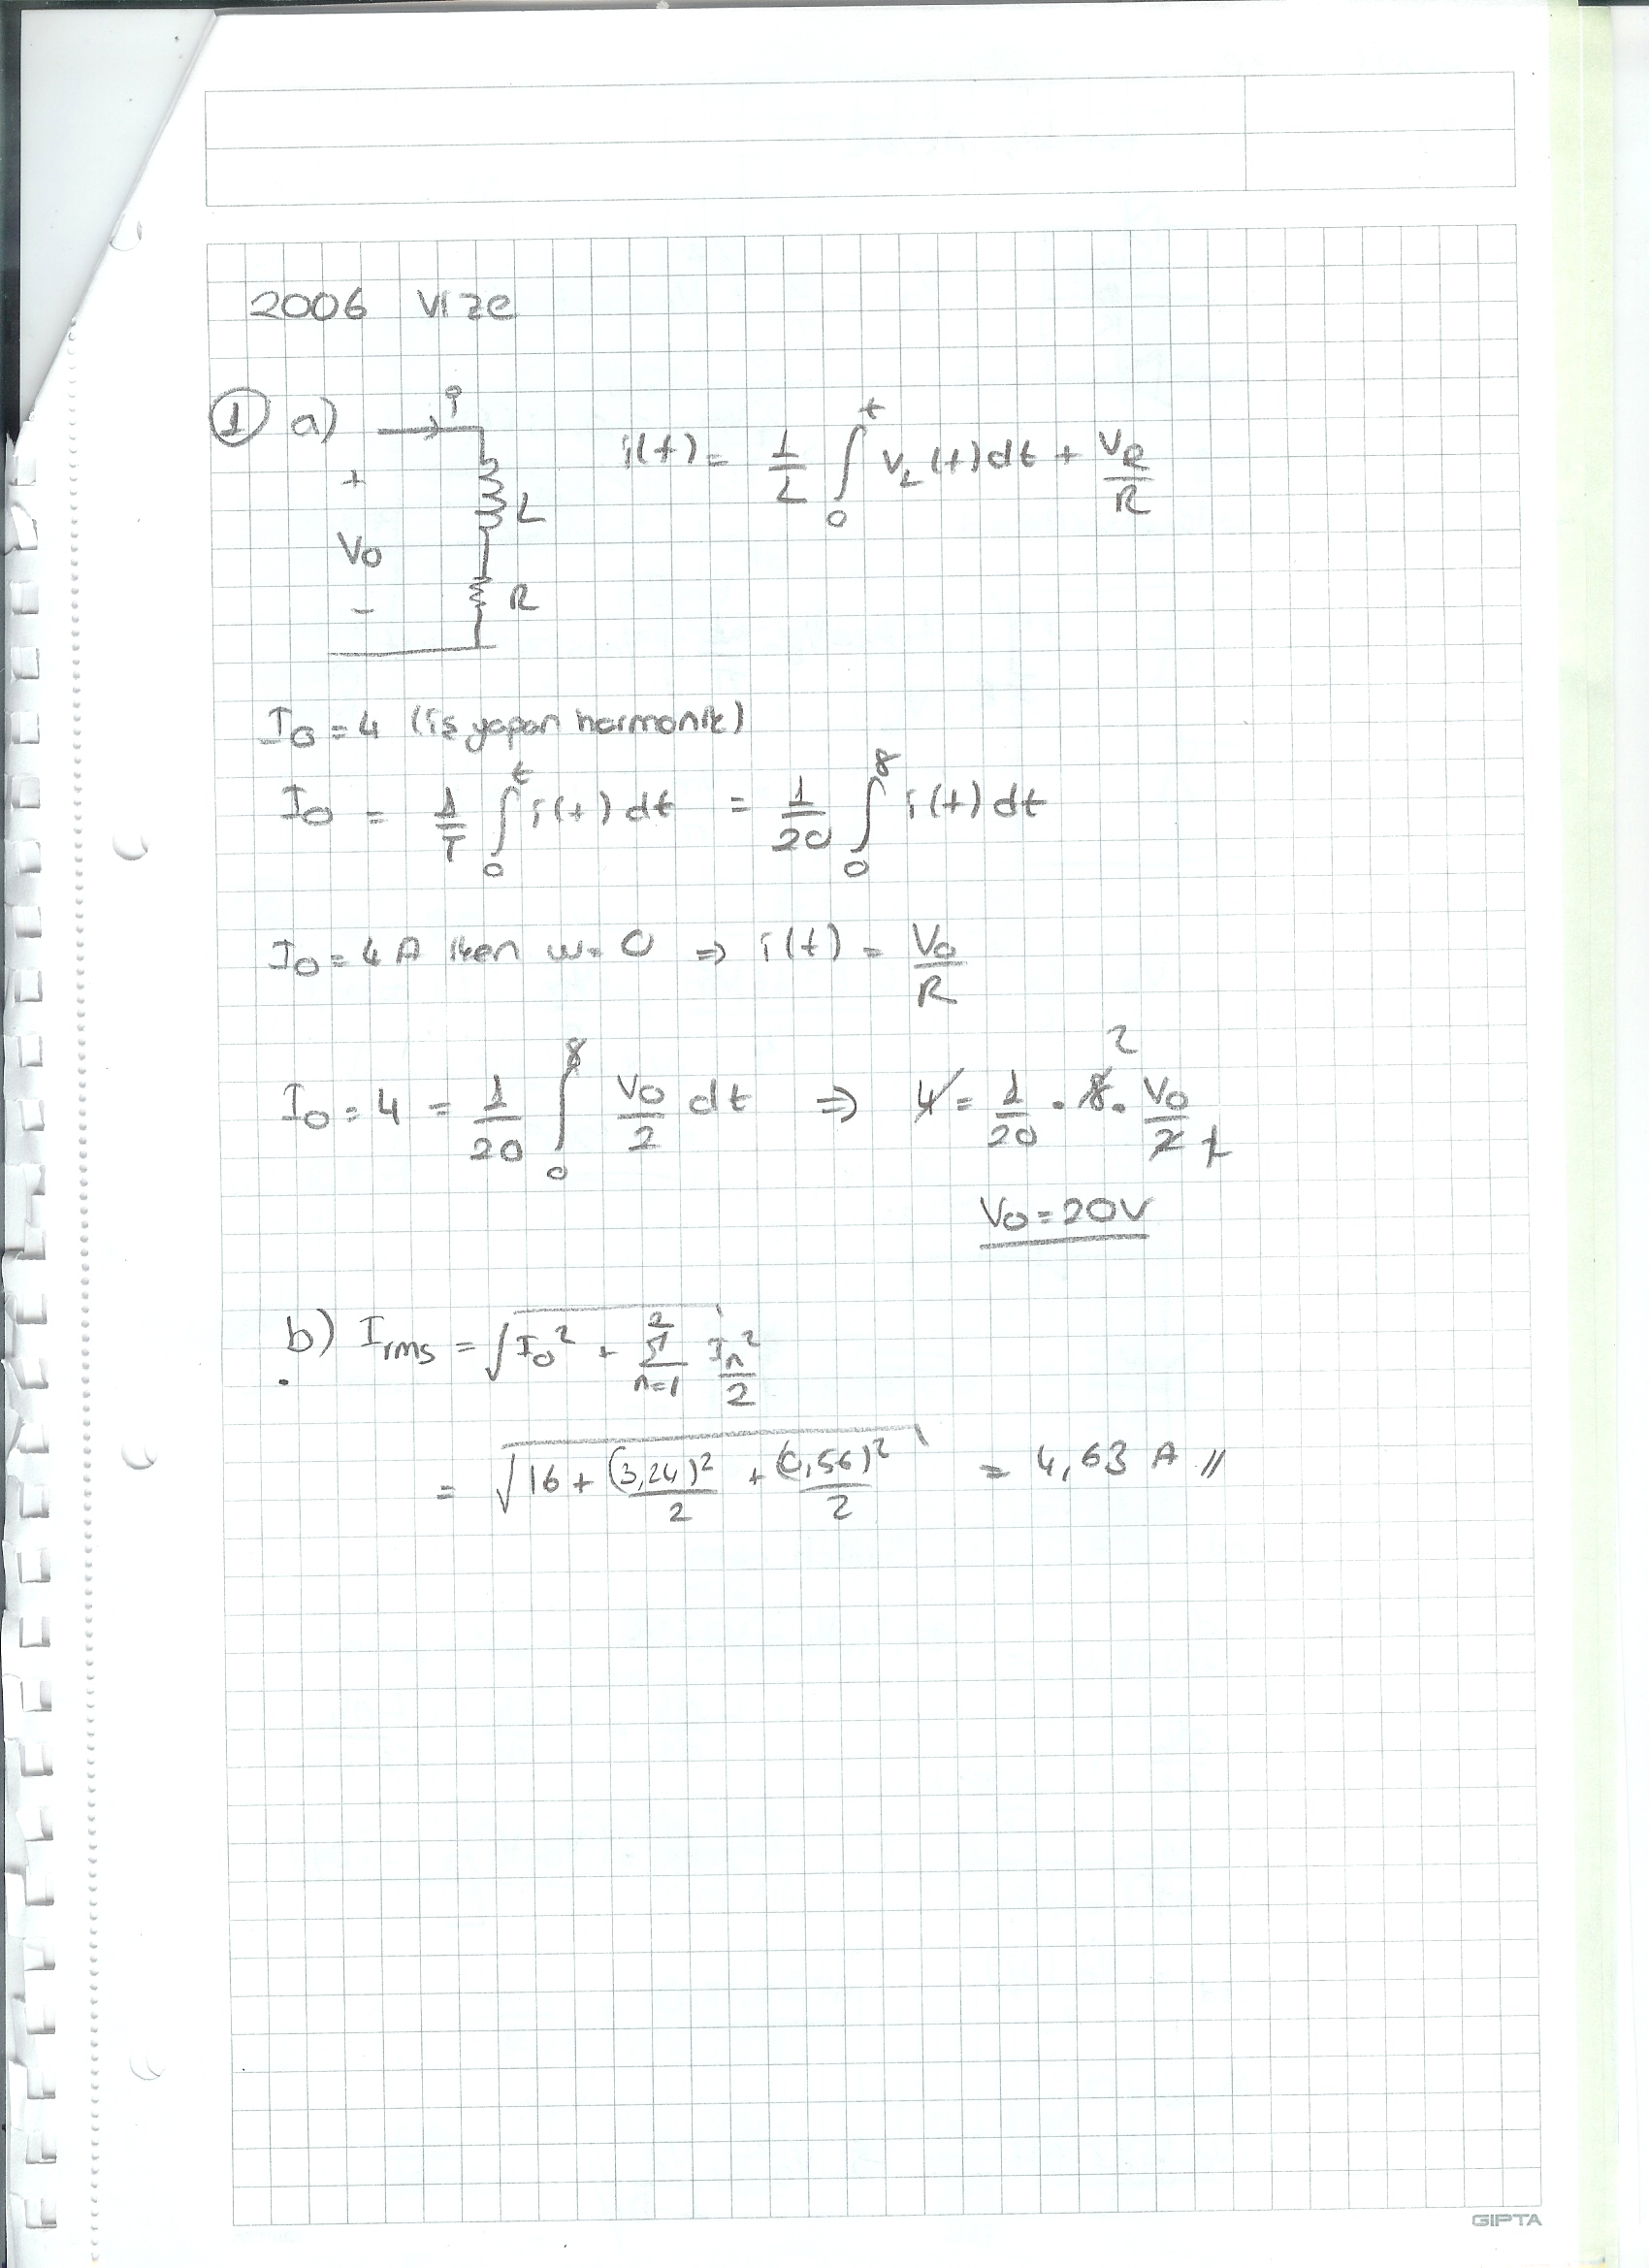 2006 Vize
① a) i
i(t) = 1/L ∫₀ᵗ v_L(t) dt + V_R/R
+
V₀
-
L
R
I₀ = 4 (iş yapan harmonik)
I₀ = 1/T ∫₀ᵗ i(t) dt = 1/20 ∫₀⁸ i(t) dt
I₀ = 4 A iken w = 0 ⇒ i(t) = V₀/R
I₀ = 4 = 1/20 ∫₀⁸ V₀/2 dt ⇒ 4 = 1/20 . 8 . V₀/2
2
1
V₀ = 20V
b) I_rms = √(I₀² + Σ_{n=1}^{2} Iₙ²/2)
= √(16 + (3,24)²/2 + (0,56)²/2) = 4,63 A //
GIPTA